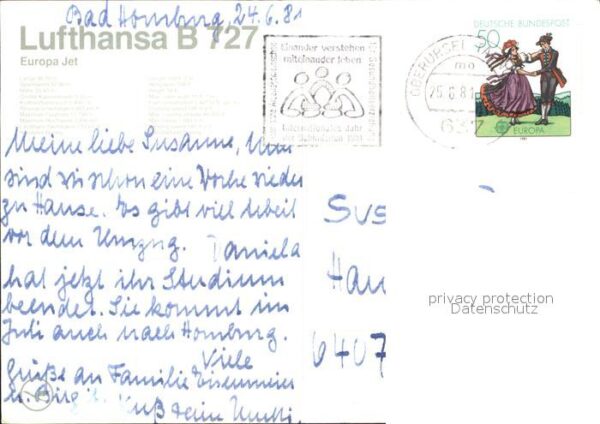 Bad Homburg, 24.6.81
Lufthansa B 727
Europa Jet
Einander verstehen
miteinander leben
Internationales Jahr
der Behinderten 1981
OBERURSEL
mo
25.6.81
637
DEUTSCHE BUNDESPOST
50
EUROPA
1981
Meine liebe Susanne, Nun
sind wir schon eine Woche wieder
zu Hause. Es gibt viel Arbeit
vor dem Umzug. Daniela
hat jetzt ihr Studium
beendet. Sie kommt im
Juli auch nach Homburg.
Viele
Grüße an Familie Eisenmeier
u. Birgit. Kuß deine Mutti
Sus
Han
6407
privacy protection
Datenschutz